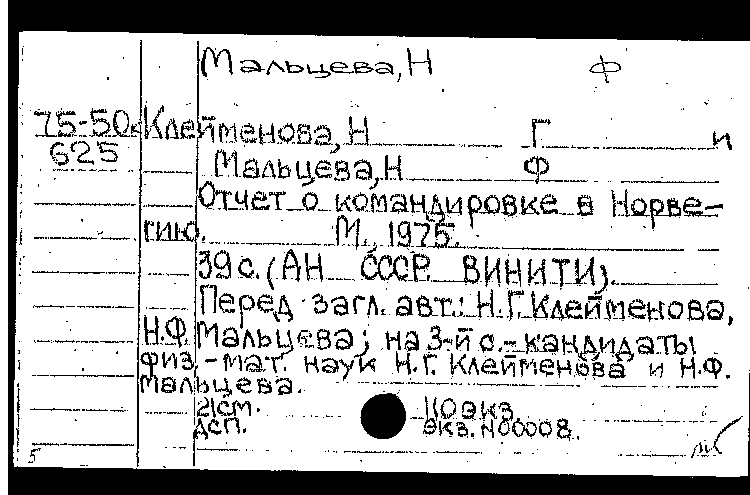 Мальцева, Н Ф
75-50к Клейменова, Н Г и
625 Мальцева, Н Ф
Отчет о командировке в Норве-
гию. М., 1975.
39 с. (АН СССР. ВИНИТИ).
Перед загл. авт.: Н.Г. Клейменова,
Н.Ф. Мальцева; на 3-й с. - кандидаты
физ.-мат. наук Н.Г. Клейменова и Н.Ф.
Мальцева.
21см. 110 экз.
дсп. экз. N00008.
5